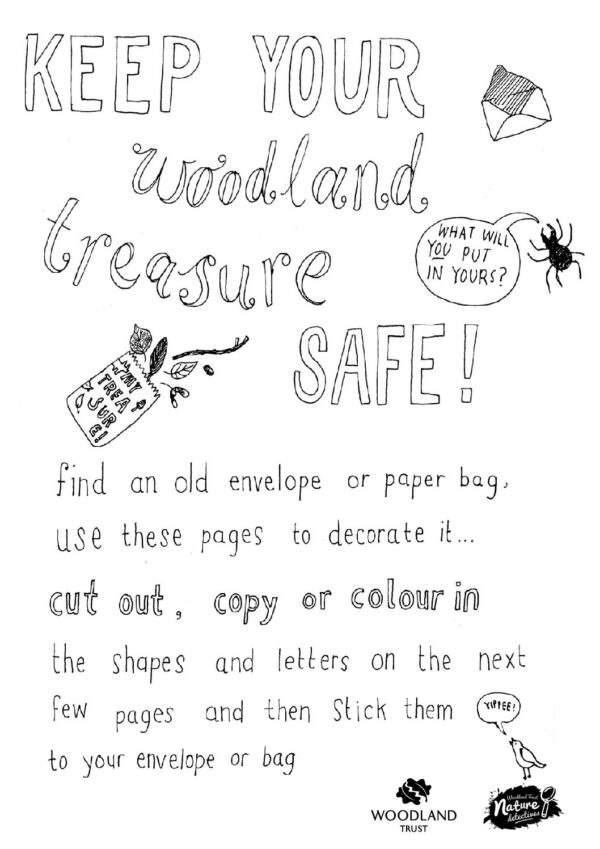 KEEP YOUR
woodland
treasure
SAFE!
WHAT WILL
YOU PUT
IN YOURS?
MY
TREA
SUR
E!
find an old envelope or paper bag,
use these pages to decorate it...
cut out, copy or colour in
the shapes and letters on the next
few pages and then stick them
to your envelope or bag
YIPPEE!
WOODLAND
TRUST
Woodland Trust
Nature
detectives